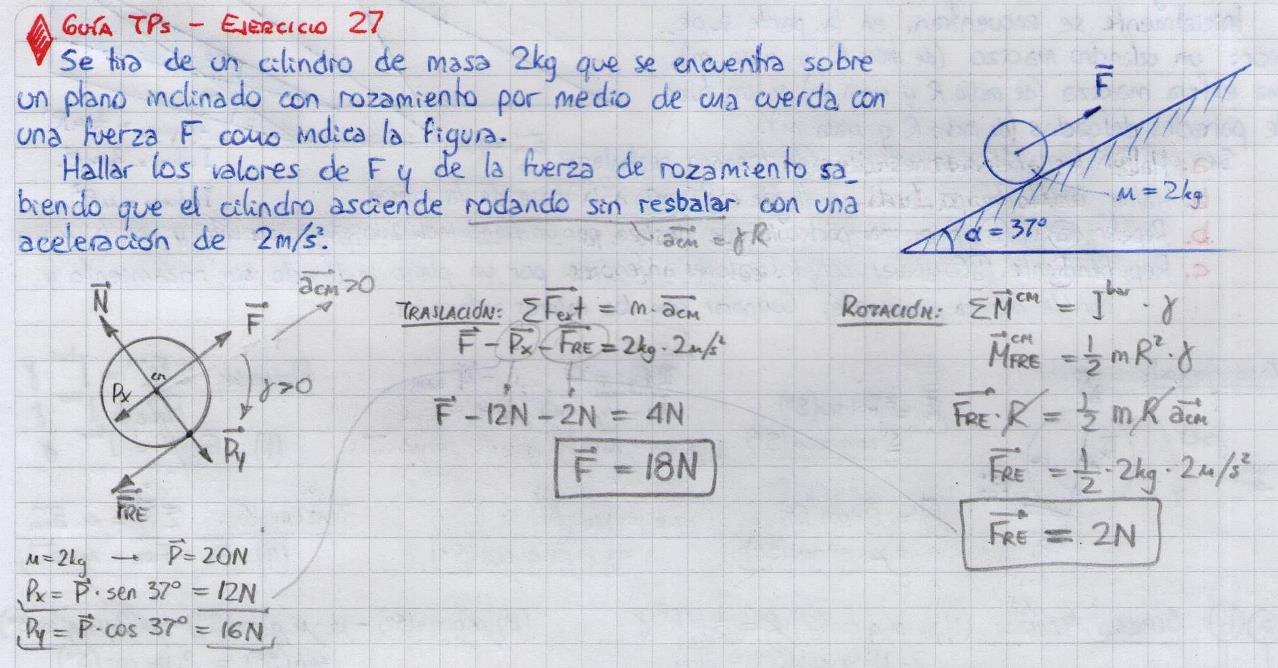 GUÍA TPs - EJERCICIO 27
Se tira de un cilindro de masa 2kg que se encuentra sobre
un plano inclinado con rozamiento por medio de una cuerda con
una fuerza F como indica la figura.
Hallar los valores de F y de la fuerza de rozamiento sa_
biendo que el cilindro asciende rodando sin resbalar con una
aceleración de 2m/s².
acm = γR
F
m = 2kg
α = 37°
N
F
acm > 0
cm
Px
γ>0
Py
FRE
m = 2kg → P = 20N
Px = P · sen 37° = 12N
Py = P · cos 37° = 16N
TRASLACIÓN: ΣFext = m · acm
F - Px - FRE = 2kg · 2m/s²
F - 12N - 2N = 4N
F = 18N
ROTACIÓN: ΣM^cm = I^bar · γ
M^cm FRE = 1/2 m R² · γ
FRE · R = 1/2 m R acm
FRE = 1/2 · 2kg · 2m/s²
FRE = 2N